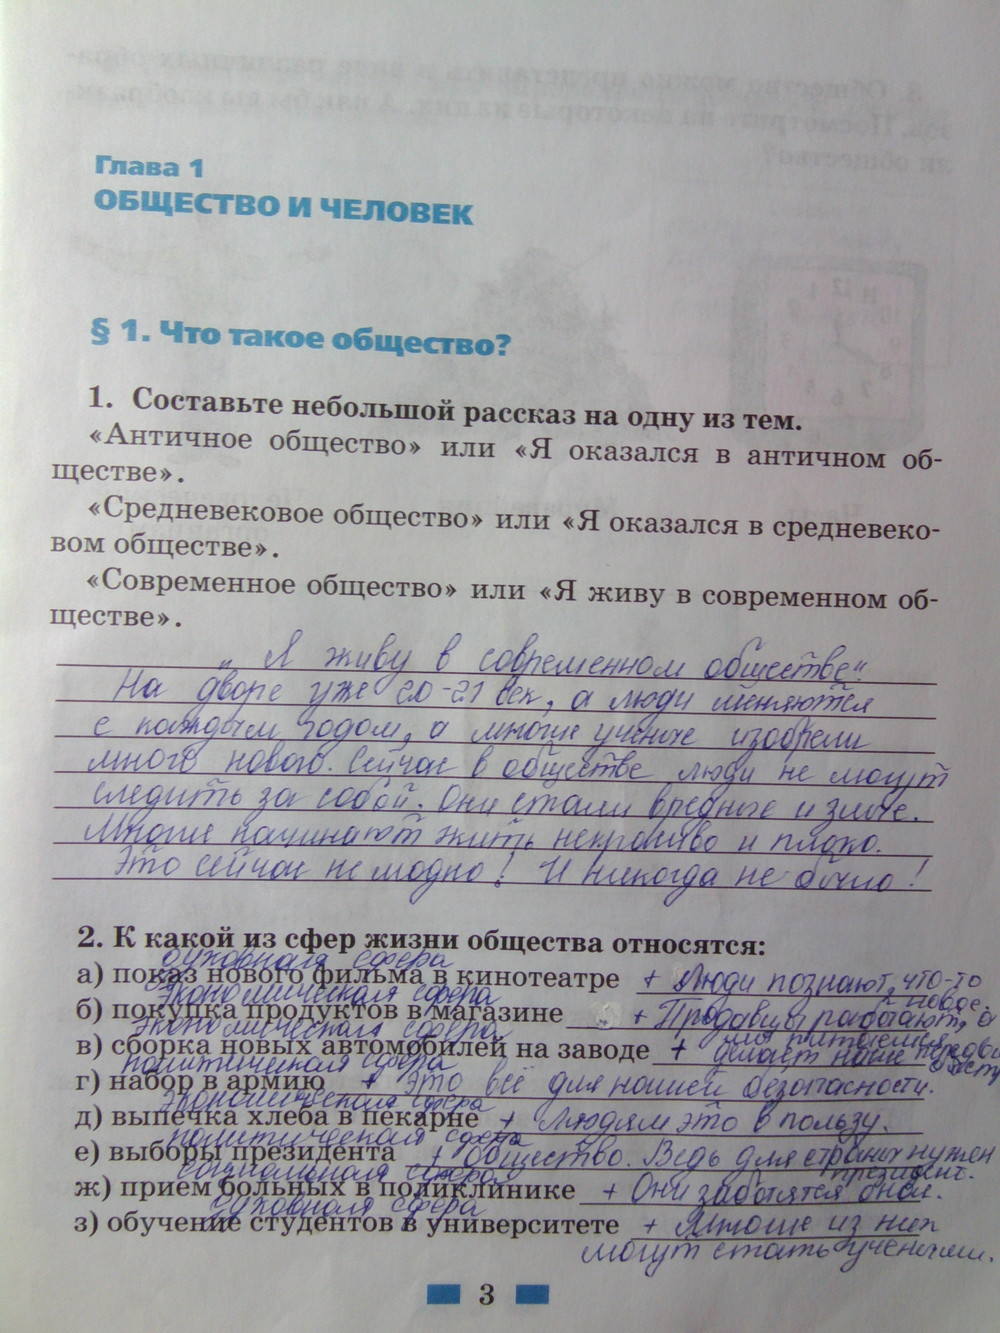 Глава 1
ОБЩЕСТВО И ЧЕЛОВЕК
§ 1. Что такое общество?
1. Составьте небольшой рассказ на одну из тем.
«Античное общество» или «Я оказался в античном об-
ществе».
«Средневековое общество» или «Я оказался в средневеко-
вом обществе».
«Современное общество» или «Я живу в современном об-
ществе».
„Я живу в современном обществе“
На дворе уже 20-21 век, а люди меняются
с каждым годом, а многие ученые изобрели
много нового. Сейчас в обществе люди не могут
следить за собой. Они стали вредные и злые.
Многие начинают жить некрасиво и плохо.
Это сейчас не модно! И никогда не было!
2. К какой из сфер жизни общества относятся:
духовная сфера
а) показ нового фильма в кинотеатре + Люди познают, что-то
новое.
экономическая сфера
б) покупка продуктов в магазине + Продавцы работают, а
мы питаемся
экономическая сфера
в) сборка новых автомобилей на заводе + делает наше
политическая сфера
г) набор в армию + это всё для нашей безопасности.
экономическая сфера
д) выпечка хлеба в пекарне + людям это в пользу.
политическая сфера
е) выборы президента + общество. Ведь для страны нужен
президент.
социальная сфера
ж) прием больных в поликлинике + Они заботятся о нас.
духовная сфера
з) обучение студентов в университете + Многие из них
могут стать учеными.
3